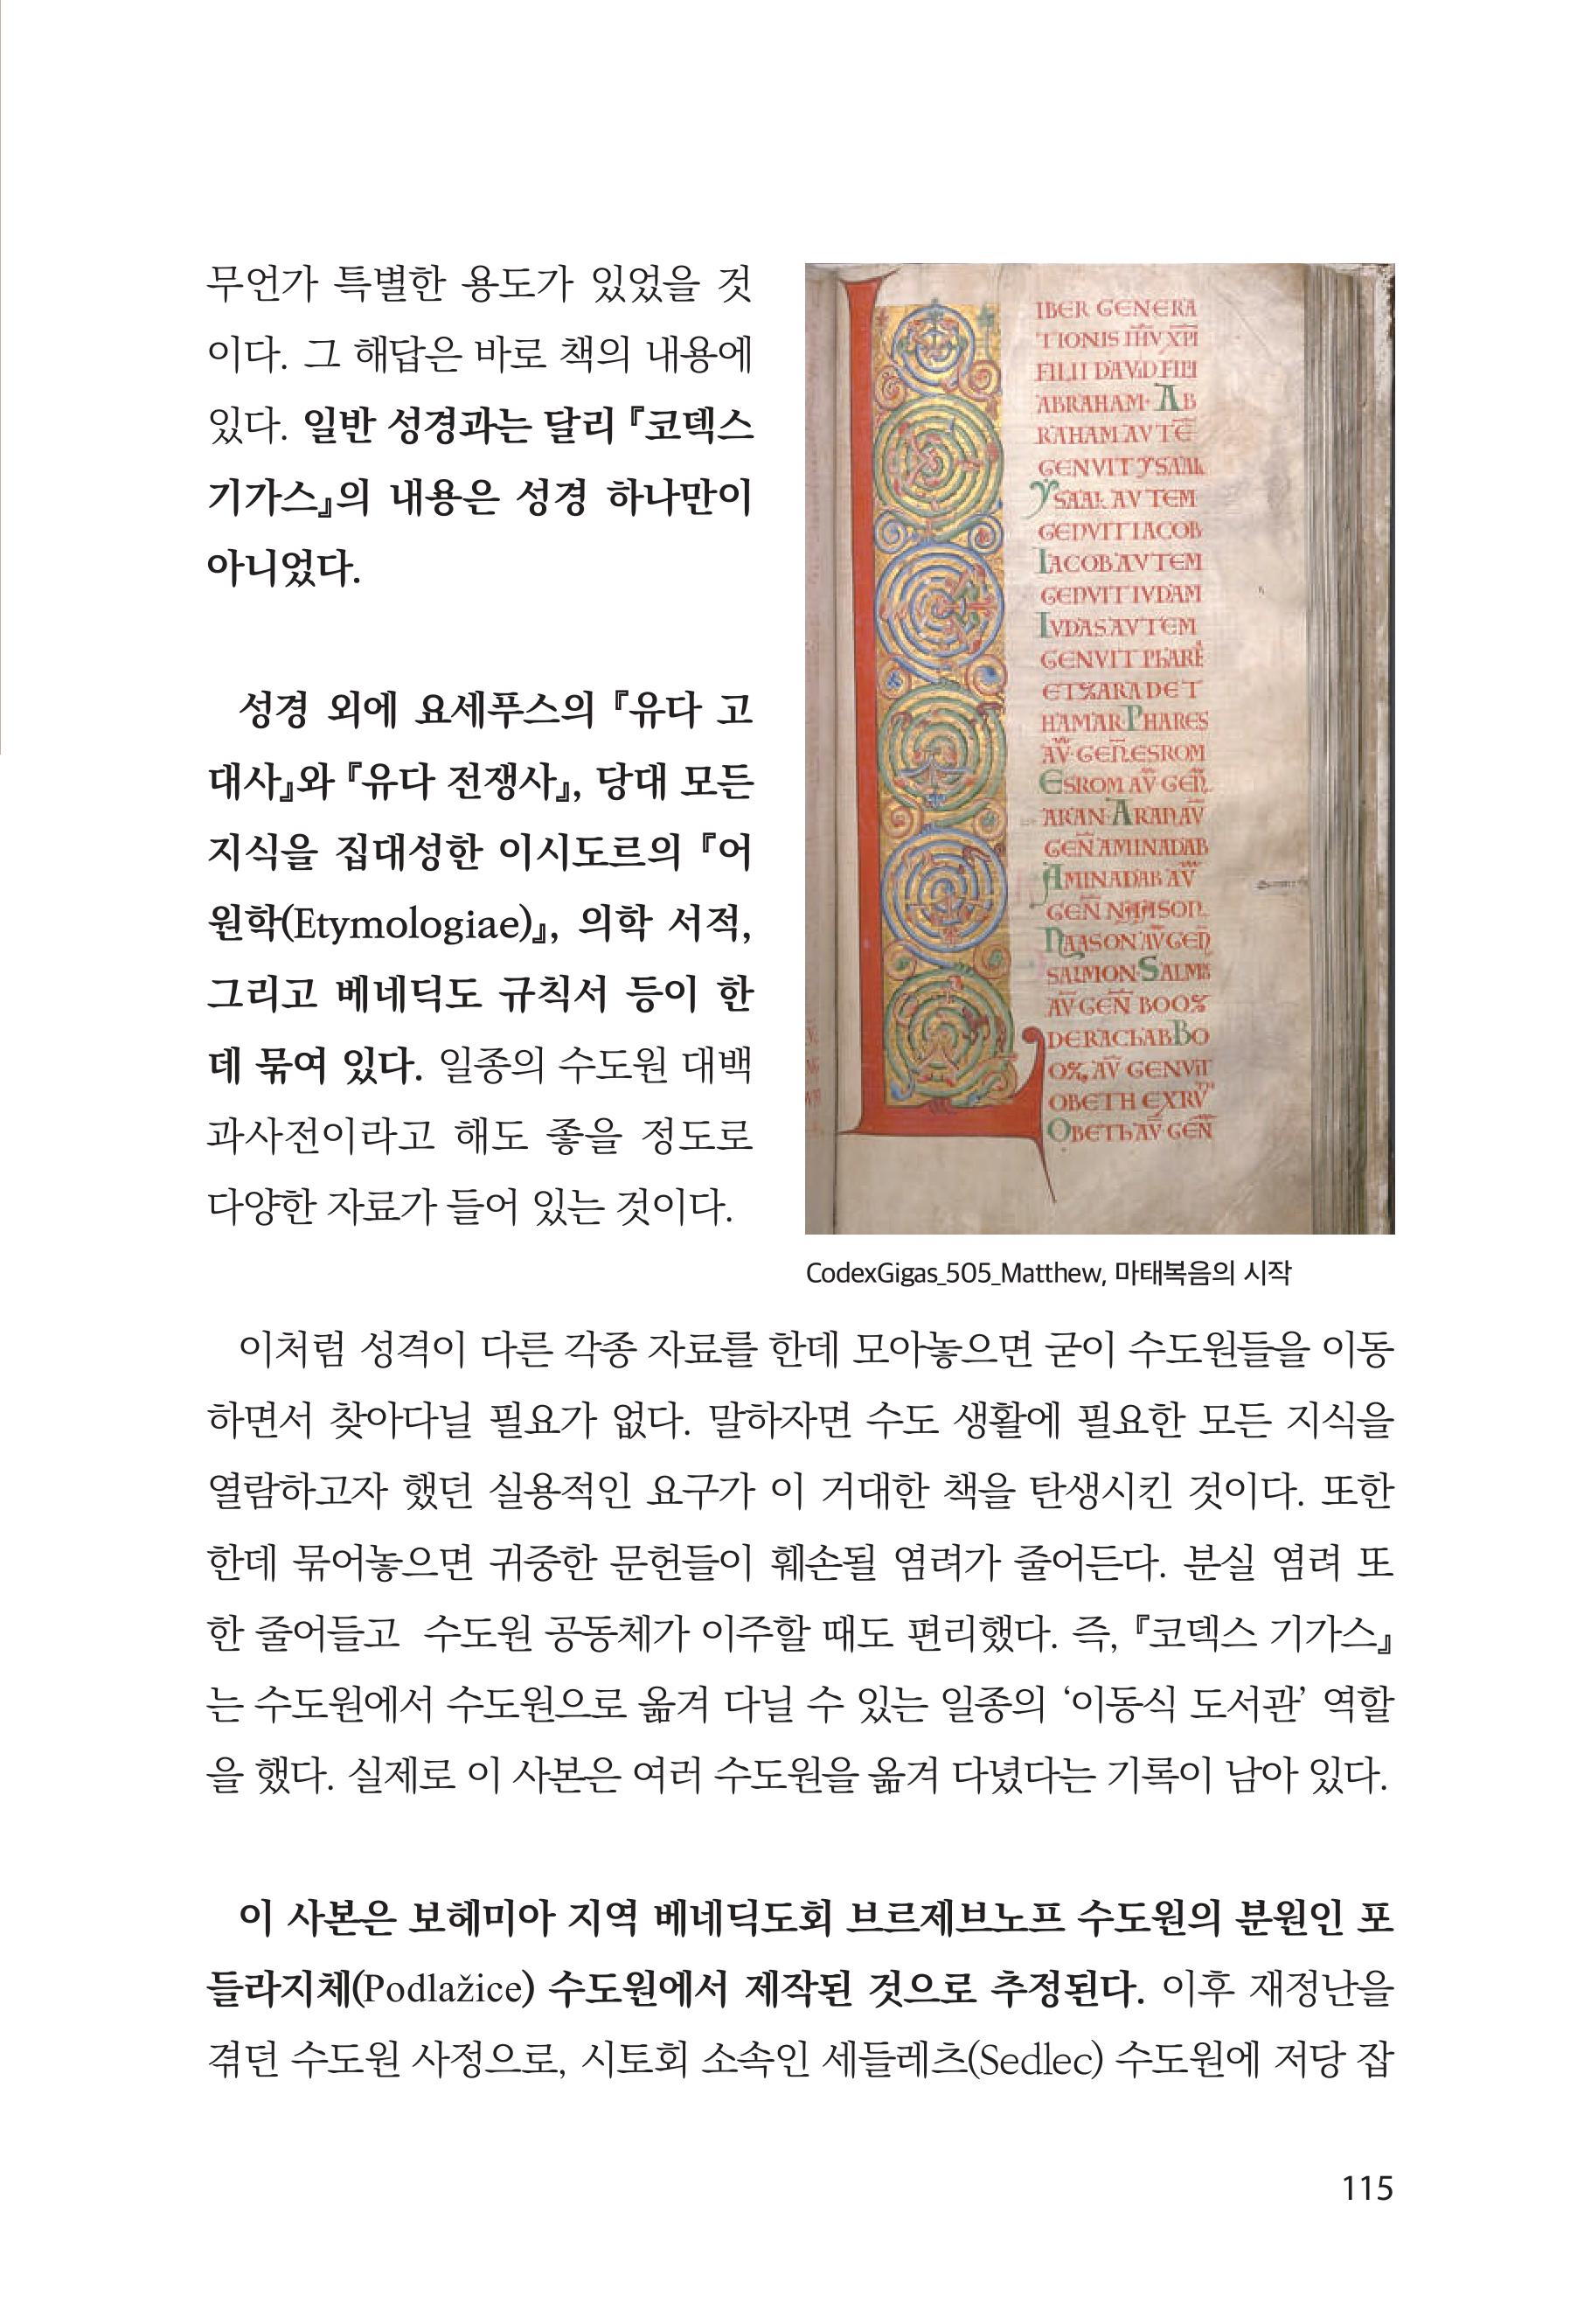 무언가 특별한 용도가 있었을 것
이다. 그 해답은 바로 책의 내용에
있다. 일반 성경과는 달리 『코덱스
기가스』의 내용은 성경 하나만이
아니었다.
성경 외에 요세푸스의 『유다 고
대사』와 『유다 전쟁사』, 당대 모든
지식을 집대성한 이시도르의 『어
원학(Etymologiae)』, 의학 서적,
그리고 베네딕도 규칙서 등이 한
데 묶여 있다. 일종의 수도원 대백
과사전이라고 해도 좋을 정도로
다양한 자료가 들어 있는 것이다.
L
IBER GENERA
TIONIS IHV XPI
FILII DAVID FILII
ABRAHAM· AB
RAHAM AVTE
GENVIT YSAAK
YSAAK AVTEM
GENVIT IACOB
IACOB AVTEM
GENVIT IVDAM
IVDAS AVTEM
GENVIT PHARE
ET ZARA DE T
HAMAR· PHARES
AV· GEN ESROM
ESROM AV· GEN
ARAN· ARAN AV
GEN AMINADAB
AMINADAB AV
GEN NAASON
NAASON AV GEN
SALMON· SALMO
AV GEN BOOZ
DE RACHAB BO
OZ, AV GENVIT
OBETH EX RV
OBETH AV· GEN
CodexGigas_505_Matthew, 마태복음의 시작
이처럼 성격이 다른 각종 자료를 한데 모아놓으면 굳이 수도원들을 이동
하면서 찾아다닐 필요가 없다. 말하자면 수도 생활에 필요한 모든 지식을
열람하고자 했던 실용적인 요구가 이 거대한 책을 탄생시킨 것이다. 또한
한데 묶어놓으면 귀중한 문헌들이 훼손될 염려가 줄어든다. 분실 염려 또
한 줄어들고 수도원 공동체가 이주할 때도 편리했다. 즉, 『코덱스 기가스』
는 수도원에서 수도원으로 옮겨 다닐 수 있는 일종의 ‘이동식 도서관’ 역할
을 했다. 실제로 이 사본은 여러 수도원을 옮겨 다녔다는 기록이 남아 있다.
이 사본은 보헤미아 지역 베네딕도회 브르제브노프 수도원의 분원인 포
들라지체(Podlažice) 수도원에서 제작된 것으로 추정된다. 이후 재정난을
겪던 수도원 사정으로, 시토회 소속인 세들레츠(Sedlec) 수도원에 저당 잡
115